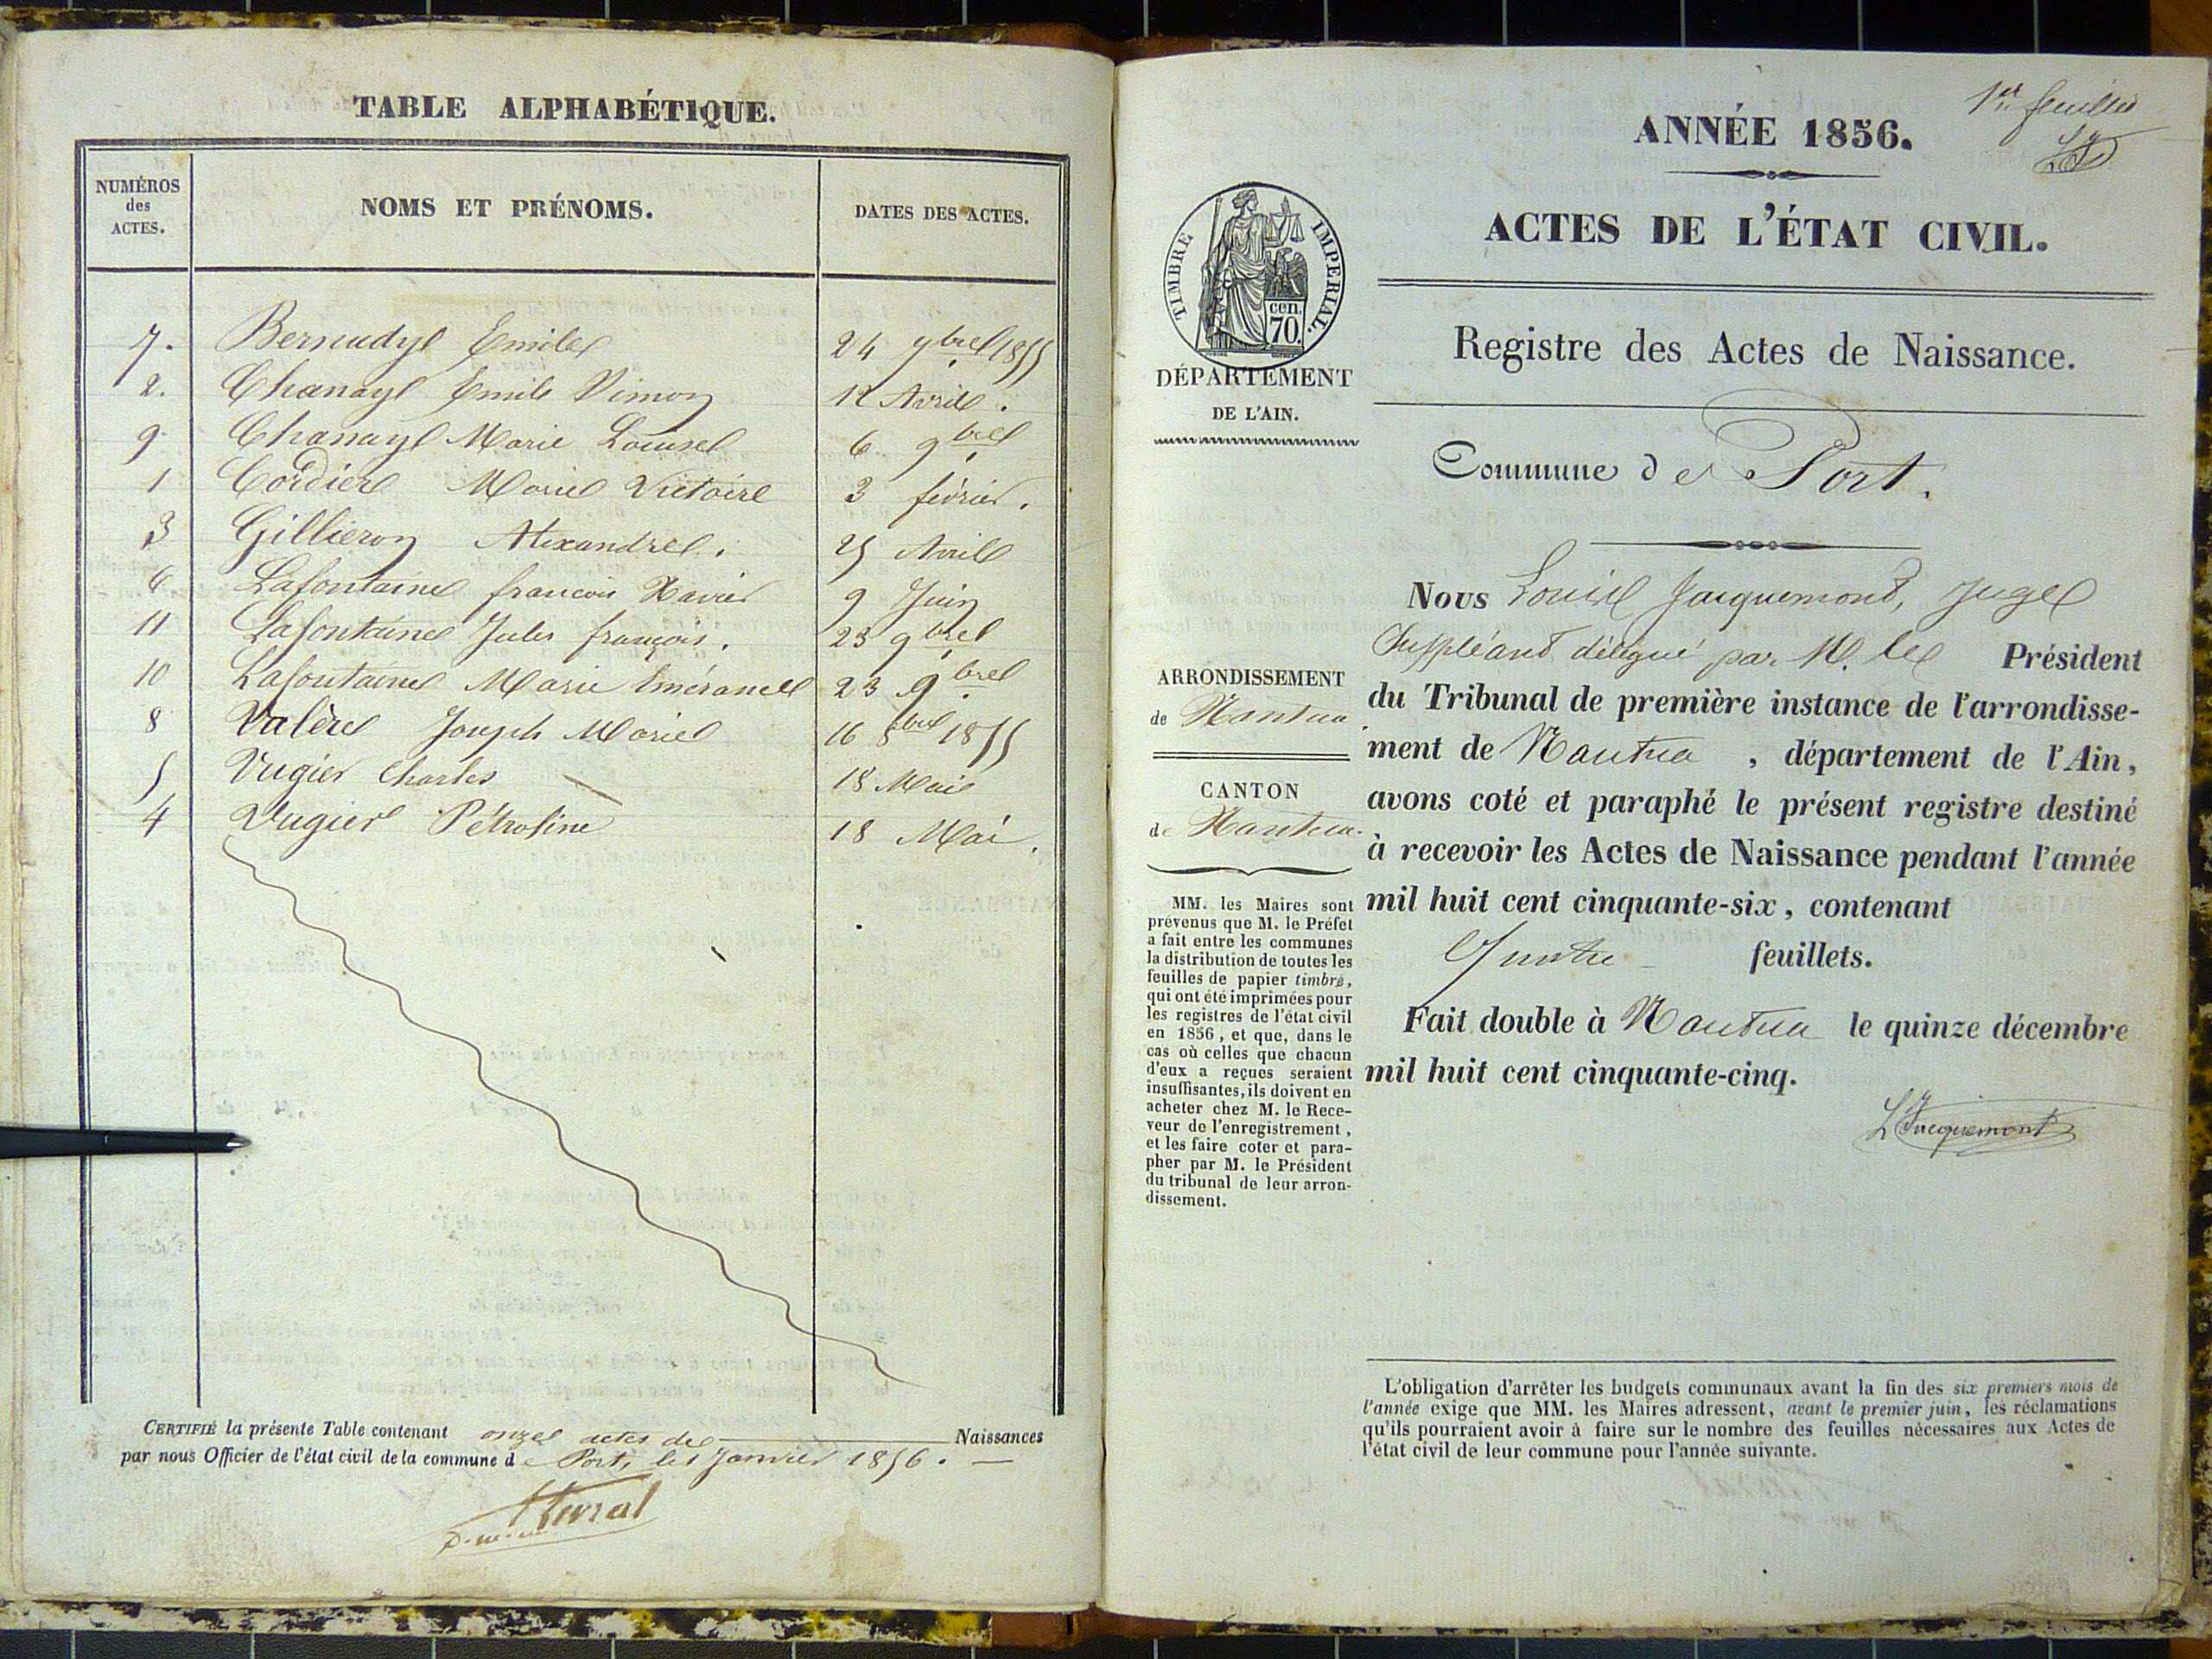 TABLE ALPHABÉTIQUE.
NUMÉROS des ACTES.
NOMS ET PRÉNOMS.
DATES DES ACTES.
7. Bernudy Emile 24 7bre 1855
2. Chanay Emile Simon 12 Avril.
9. Chanay Marie Louise 6 9bre
1 Cordier Marie Victoire 3 février.
3 Gillieron Alexandre. 25 Avril
6 Lafontaine francois Xavier 9 Juin
11 Lafontaine Jules françois. 23 9bre
10 Lafontaine Marie 23 9bre
8 Valère Joseph Marie 16 8bre 1855
5 Vugier Charles 18 Mai
4 Vugier Pétroline 18 Mai.
CERTIFIÉ la présente Table contenant onze actes de Naissances
par nous Officier de l'état civil de la commune de Port, le 1 Janvier 1856.
1er feuillet
ANNÉE 1856.
ACTES DE L'ÉTAT CIVIL.
TIMBRE IMPERIAL.
cen.
70.
DÉPARTEMENT
DE L'AIN.
Registre des Actes de Naissance.
Commune de Port.
ARRONDISSEMENT
de Nantua.
CANTON
de Nantua.
MM. les Maires sont
prévenus que M. le Préfet
a fait entre les communes
la distribution de toutes les
feuilles de papier timbré,
qui ont été imprimées pour
les registres de l'état civil
en 1856, et que, dans le
cas où celles que chacun
d'eux a reçues seraient
insuffisantes, ils doivent en
acheter chez M. le Rece-
veur de l'enregistrement,
et les faire coter et para-
pher par M. le Président
du tribunal de leur arron-
dissement.
Nous Louis Jacquemond, Juge
Suppléant délégué par M. le Président
du Tribunal de première instance de l'arrondisse-
ment de Nantua, département de l'Ain,
avons coté et paraphé le présent registre destiné
à recevoir les Actes de Naissance pendant l'année
mil huit cent cinquante-six, contenant
Quatre feuillets.
Fait double à Nantua le quinze décembre
mil huit cent cinquante-cinq.
L Jacquemont
L'obligation d'arrêter les budgets communaux avant la fin des six premiers mois de
l'année exige que MM. les Maires adressent, avant le premier juin, les réclamations
qu'ils pourraient avoir à faire sur le nombre des feuilles nécessaires aux Actes de
l'état civil de leur commune pour l'année suivante.